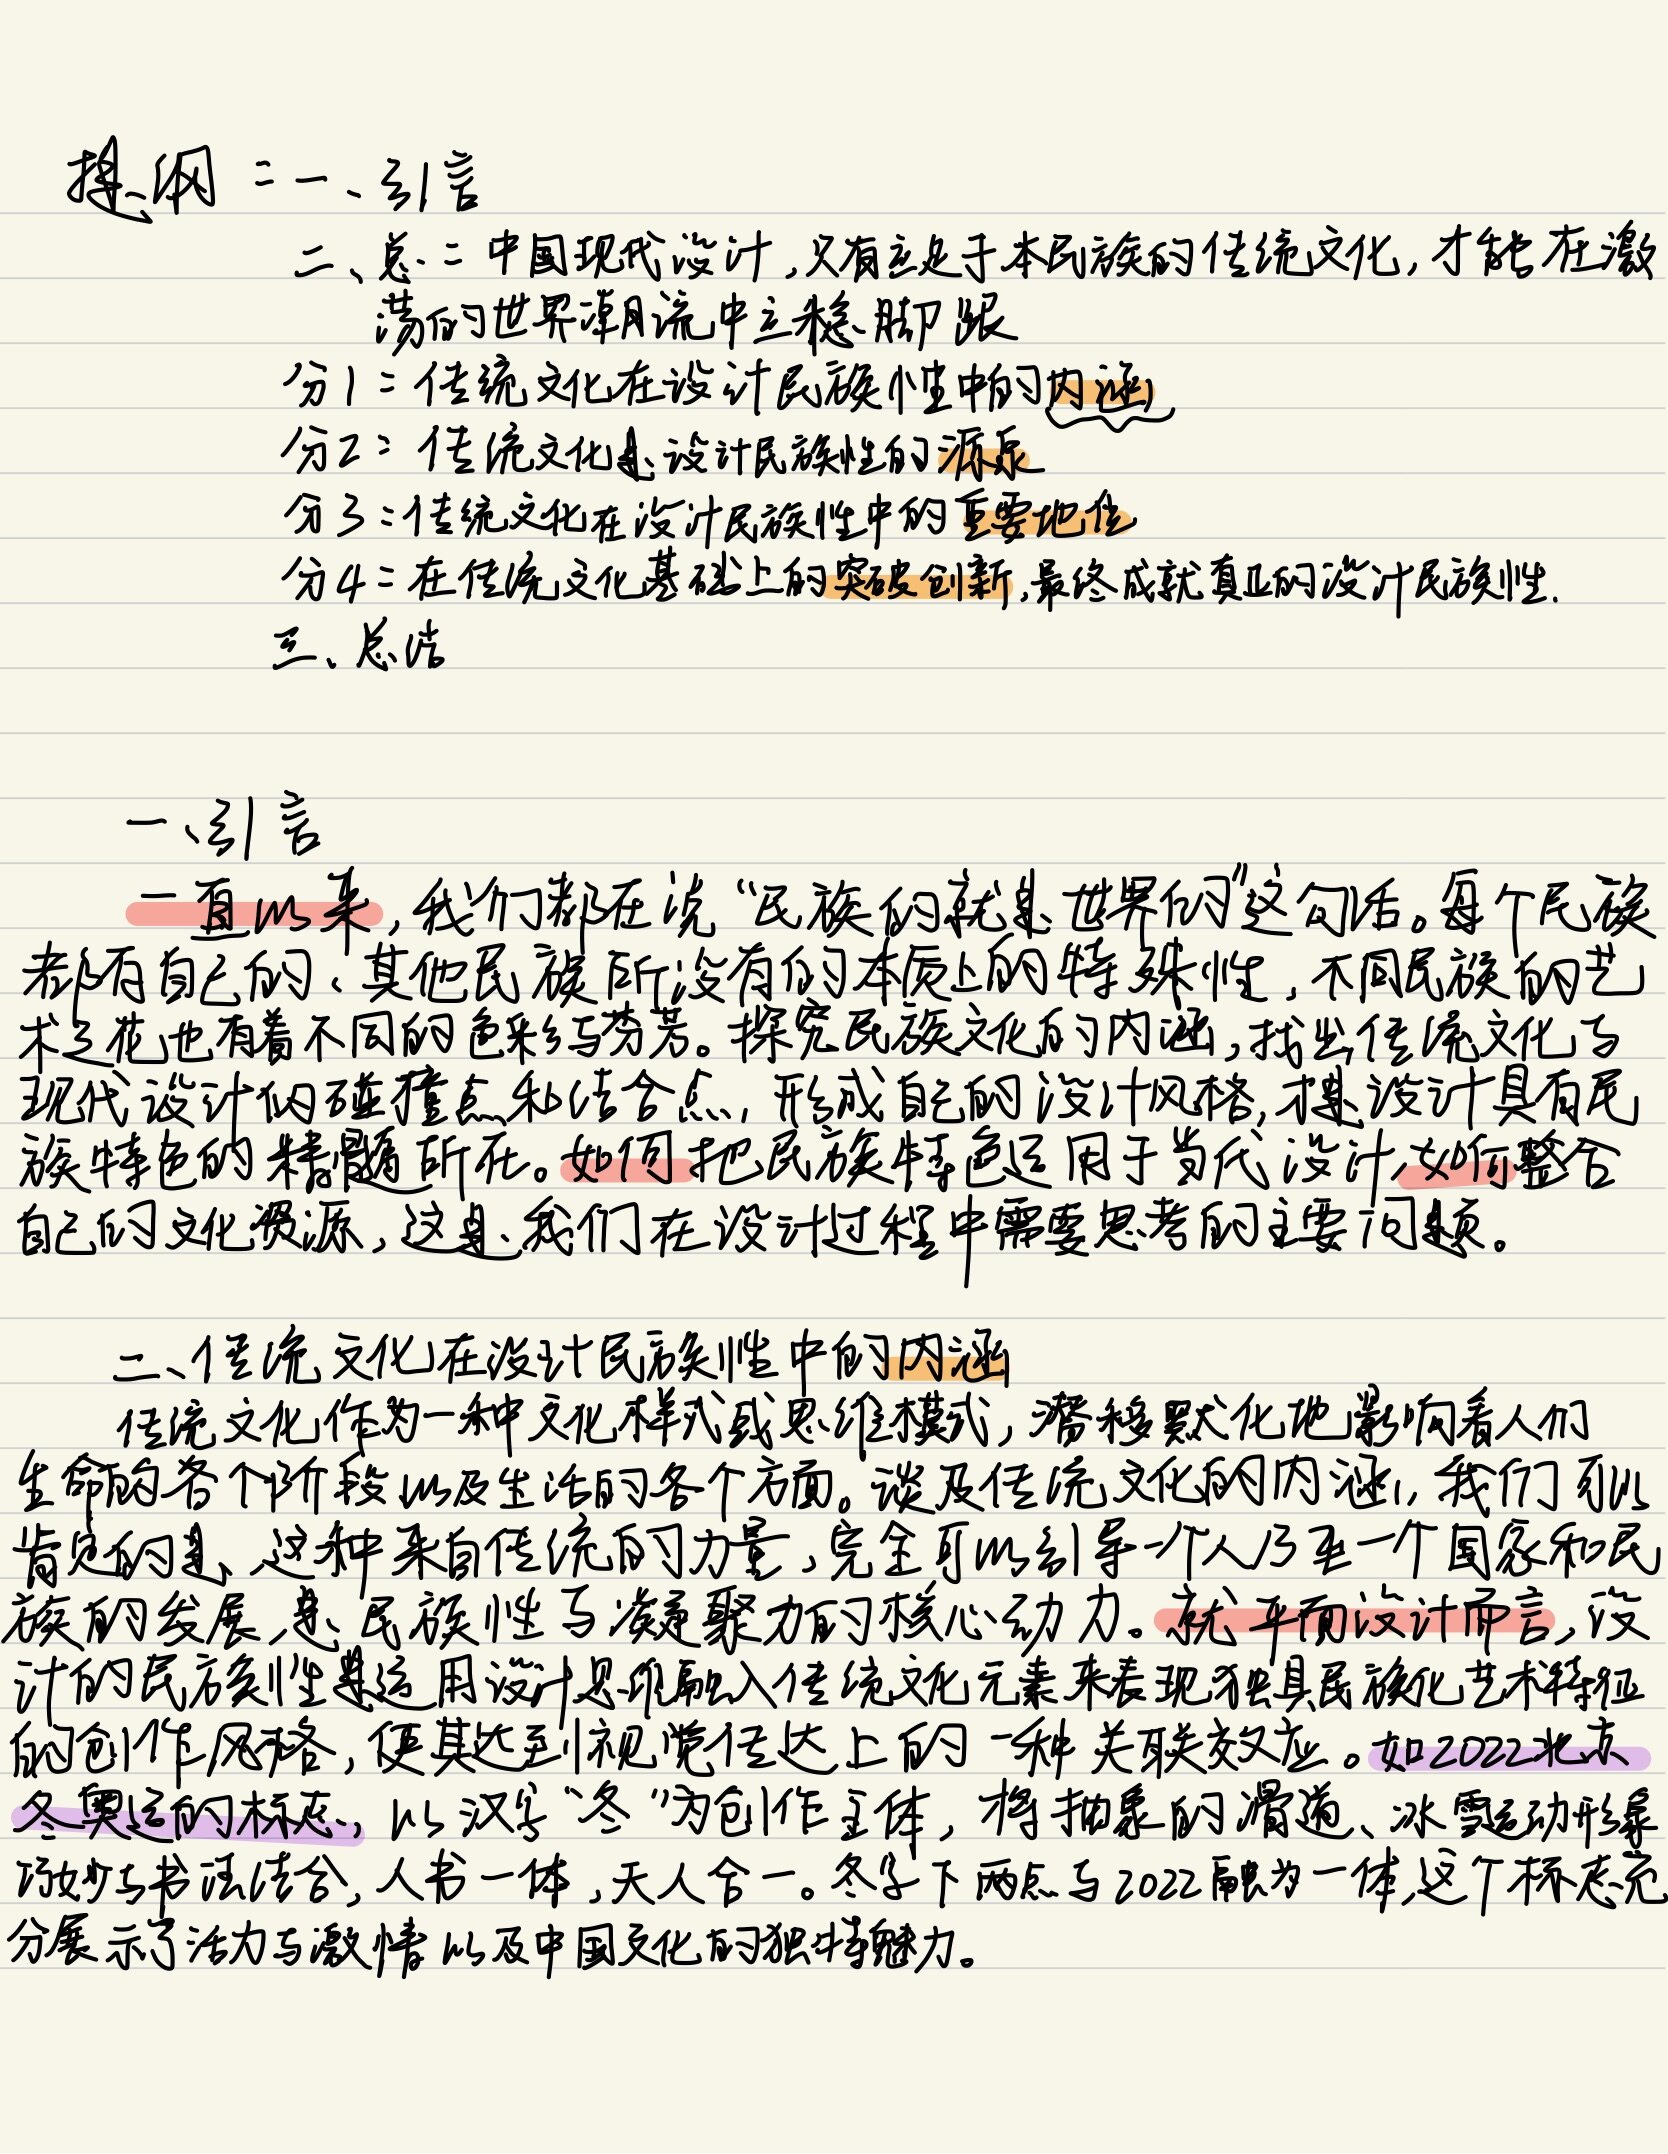 提纲：一、引言
二、总：中国现代设计，只有立足于本民族的传统文化，才能在激
荡的世界潮流中立稳脚跟
分1：传统文化在设计民族性中的内涵
分2：传统文化是设计民族性的源泉
分3：传统文化在设计民族性中的重要地位
分4：在传统文化基础上的突破创新，最终成就真正的设计民族性.
三、总结
一、引言
一直以来，我们都在说“民族的就是世界的”这句话。每个民族
都有自己的、其他民族所没有的本质上的特殊性，不同民族的艺
术之花也有着不同的色彩与芬芳。探究民族文化的内涵，找出传统文化与
现代设计的碰撞点和结合点，形成自己的设计风格，才是设计具有民
族特色的精髓所在。如何把民族特色运用于当代设计，如何整合
自己的文化资源，这是我们在设计过程中需要思考的主要问题。
二、传统文化在设计民族性中的内涵
传统文化作为一种文化样式或思维模式，潜移默化地影响着人们
生命的各个阶段以及生活的各个方面。谈及传统文化的内涵，我们可以
肯定的是、这种来自传统的力量，完全可以引导一个人乃至一个国家和民
族的发展，是民族性与凝聚力的核心动力。就平面设计而言，设
计的民族性是运用设计思维融入传统文化元素来表现独具民族化艺术特征
的创作风格，使其达到视觉传达上的一种关联效应。如2022北京
冬奥运的标志，以汉字“冬”为创作主体，将抽象的滑道、冰雪运动形象
巧妙与书法结合，人书一体，天人合一。冬字下两点与2022融为一体，这个标志充
分展示了活力与激情以及中国文化的独特魅力。